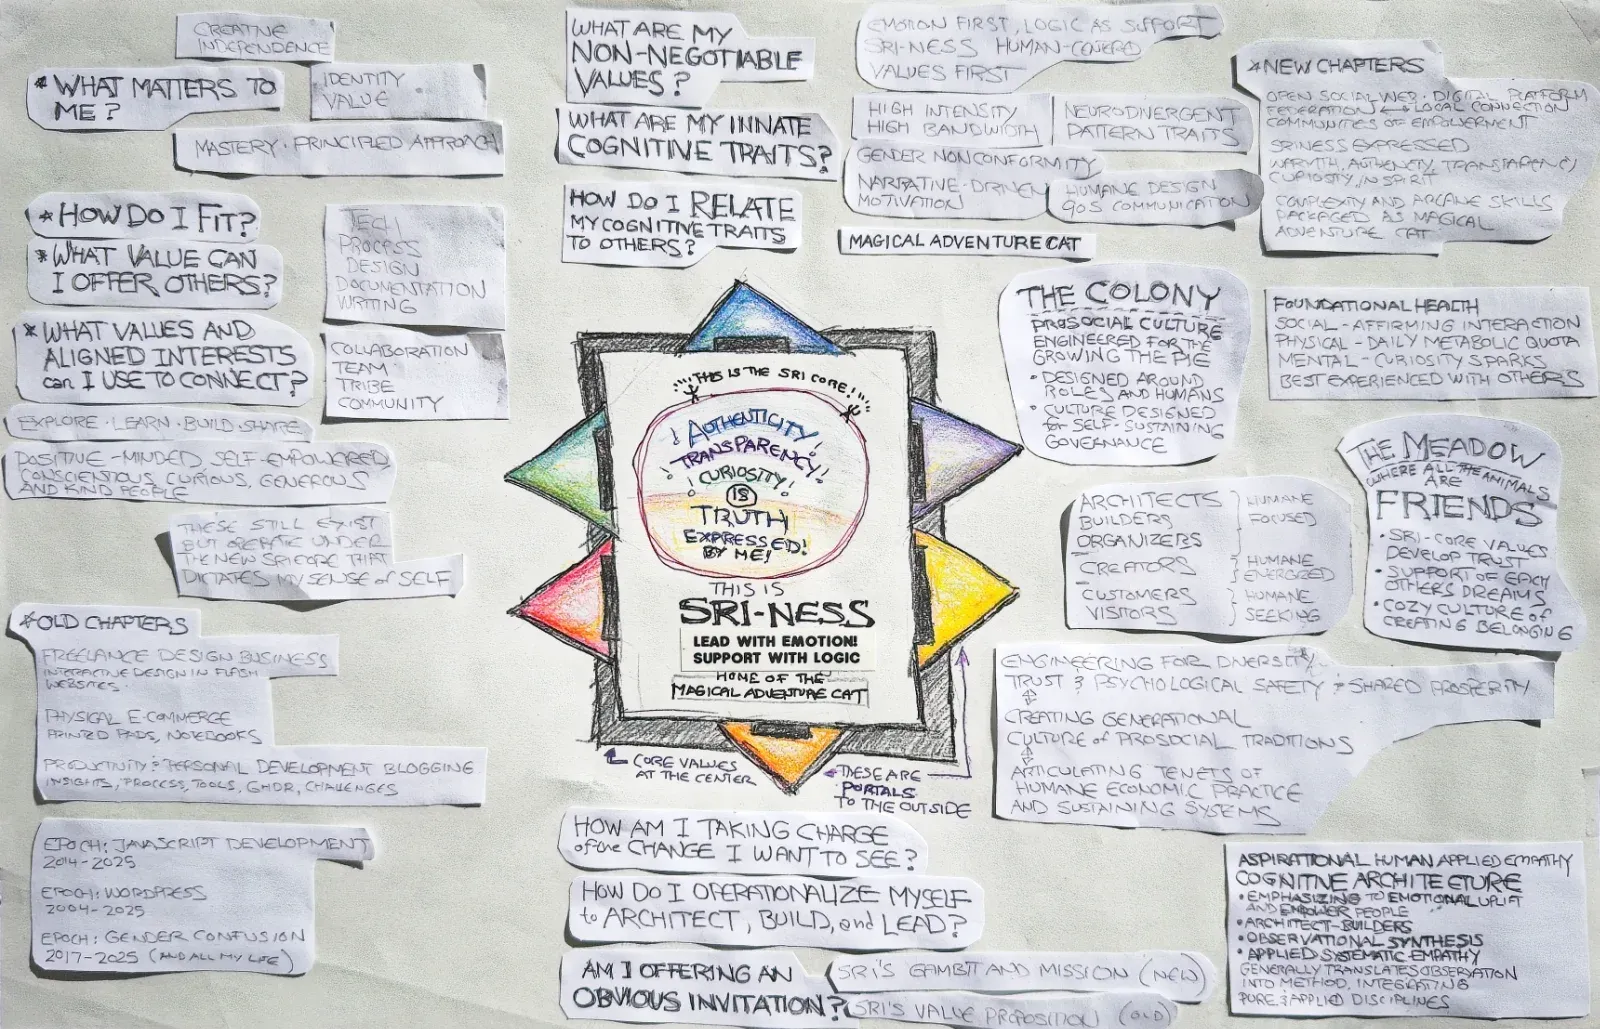 CREATIVE
INDEPENDENCE
* WHAT MATTERS TO
ME?
IDENTITY
VALUE
MASTERY · PRINCIPLED APPROACH
* HOW DO I FIT?
* WHAT VALUE CAN
I OFFER OTHERS?
* WHAT VALUES AND
ALIGNED INTERESTS
can I USE TO CONNECT?
TECH
PROCESS
DESIGN
DOCUMENTATION
WRITING
COLLABORATION
TEAM
TRIBE
COMMUNITY
EXPLORE · LEARN · BUILD · SHARE
POSITIVE-MINDED, SELF-EMPOWERED,
CONSCIENTIOUS, CURIOUS, GENEROUS
AND KIND PEOPLE
THESE STILL EXIST
BUT OPERATE UNDER
THE NEW SRI CORE THAT
DICTATES MY SENSE of SELF
* OLD CHAPTERS
FREELANCE DESIGN BUSINESS
INTERACTIVE DESIGN IN FLASH
WEBSITES
PHYSICAL E-COMMERCE
PRINTED PADS, NOTEBOOKS
PRODUCTIVITY & PERSONAL DEVELOPMENT BLOGGING
INSIGHTS, PROCESS, TOOLS, GHDR, CHALLENGES
EPOCH: JAVASCRIPT DEVELOPMENT
2014-2025
EPOCH: WORDPRESS
2004-2025
EPOCH: GENDER CONFUSION
2017-2025 (AND ALL MY LIFE)
WHAT ARE MY
NON-NEGOTIABLE
VALUES?
WHAT ARE MY INNATE
COGNITIVE TRAITS?
HOW DO I RELATE
MY COGNITIVE TRAITS
TO OTHERS?
EMOTION FIRST, LOGIC AS SUPPORT
SRI-NESS HUMAN-CENTERED
VALUES FIRST
HIGH INTENSITY
HIGH BANDWIDTH
NEURODIVERGENT
PATTERN TRAITS
GENDER NONCONFORMITY
NARRATIVE-DRIVEN
MOTIVATION
HUMANE DESIGN
90S COMMUNICATION
MAGICAL ADVENTURE CAT
THIS IS THE SRI CORE!
! AUTHENTICITY !
! TRANSPARENCY !
! CURIOSITY !
IS
TRUTH
EXPRESSED!
BY ME!
THIS IS
SRI-NESS
LEAD WITH EMOTION!
SUPPORT WITH LOGIC
HOME OF THE
MAGICAL ADVENTURE CAT
CORE VALUES
AT THE CENTER
THESE ARE
PORTALS
TO THE OUTSIDE
HOW AM I TAKING CHARGE
of the CHANGE I WANT TO SEE?
HOW DO I OPERATIONALIZE MYSELF
to ARCHITECT, BUILD, and LEAD?
AM I OFFERING AN
OBVIOUS INVITATION?
SRI'S GAMBIT AND MISSION (NEW)
SRI'S VALUE PROPOSITION (OLD)
* NEW CHAPTERS
OPEN SOCIAL WEB · DIGITAL PLATFORM
FEDERATION ↔ LOCAL CONNECTION
COMMUNITIES OF EMPOWERMENT
SRINESS EXPRESSED
WARMTH, AUTHENCITY, TRANSPARENCY
CURIOSITY, IN SPIRIT
COMPLEXITY AND ARCANE SKILLS
PACKAGED AS MAGICAL
ADVENTURE CAT
THE COLONY
PROSOCIAL CULTURE
ENGINEERED FOR THE
GROWING THE PIE
• DESIGNED AROUND
ROLES AND HUMANS
• CULTURE DESIGNED
for SELF-SUSTAINING
GOVERNANCE
FOUNDATIONAL HEALTH
SOCIAL - AFFIRMING INTERACTION
PHYSICAL - DAILY METABOLIC QUOTA
MENTAL - CURIOSITY SPARKS
BEST EXPERIENCED WITH OTHERS
THE MEADOW
WHERE ALL THE ANIMALS
ARE
FRIENDS
• SRI-CORE VALUES
DEVELOP TRUST
• SUPPORT OF EACH
OTHERS DREAMS
• COZY CULTURE of
CREATING BELONGING
ARCHITECTS
BUILDERS
ORGANIZERS
HUMANE
FOCUSED
CREATORS
HUMANE
ENERGIZED
CUSTOMERS
VISITORS
HUMANE
SEEKING
ENGINEERING FOR DIVERSITY,
TRUST & PSYCHOLOGICAL SAFETY & SHARED PROSPERITY
CREATING GENERATIONAL
CULTURE of PROSOCIAL TRADITIONS
ARTICULATING TENETS OF
HUMANE ECONOMIC PRACTICE
AND SUSTAINING SYSEMS
ASPIRATIONAL HUMAN APPLIED EMPATHY
COGNITIVE ARCHITECTURE
• EMPHASIZING TO EMOTIONAL UPLIFT
AND EMPOWER PEOPLE
• ARCHITECT-BUILDERS
• OBSERVATIONAL SYNTHESIS
• APPLIED SYSTEMATIC EMPATHY
GENERALLY TRANSLATES OBSERVATION
INTO METHOD, INTEGRATING
PURE & APPLIED DISCIPLINES